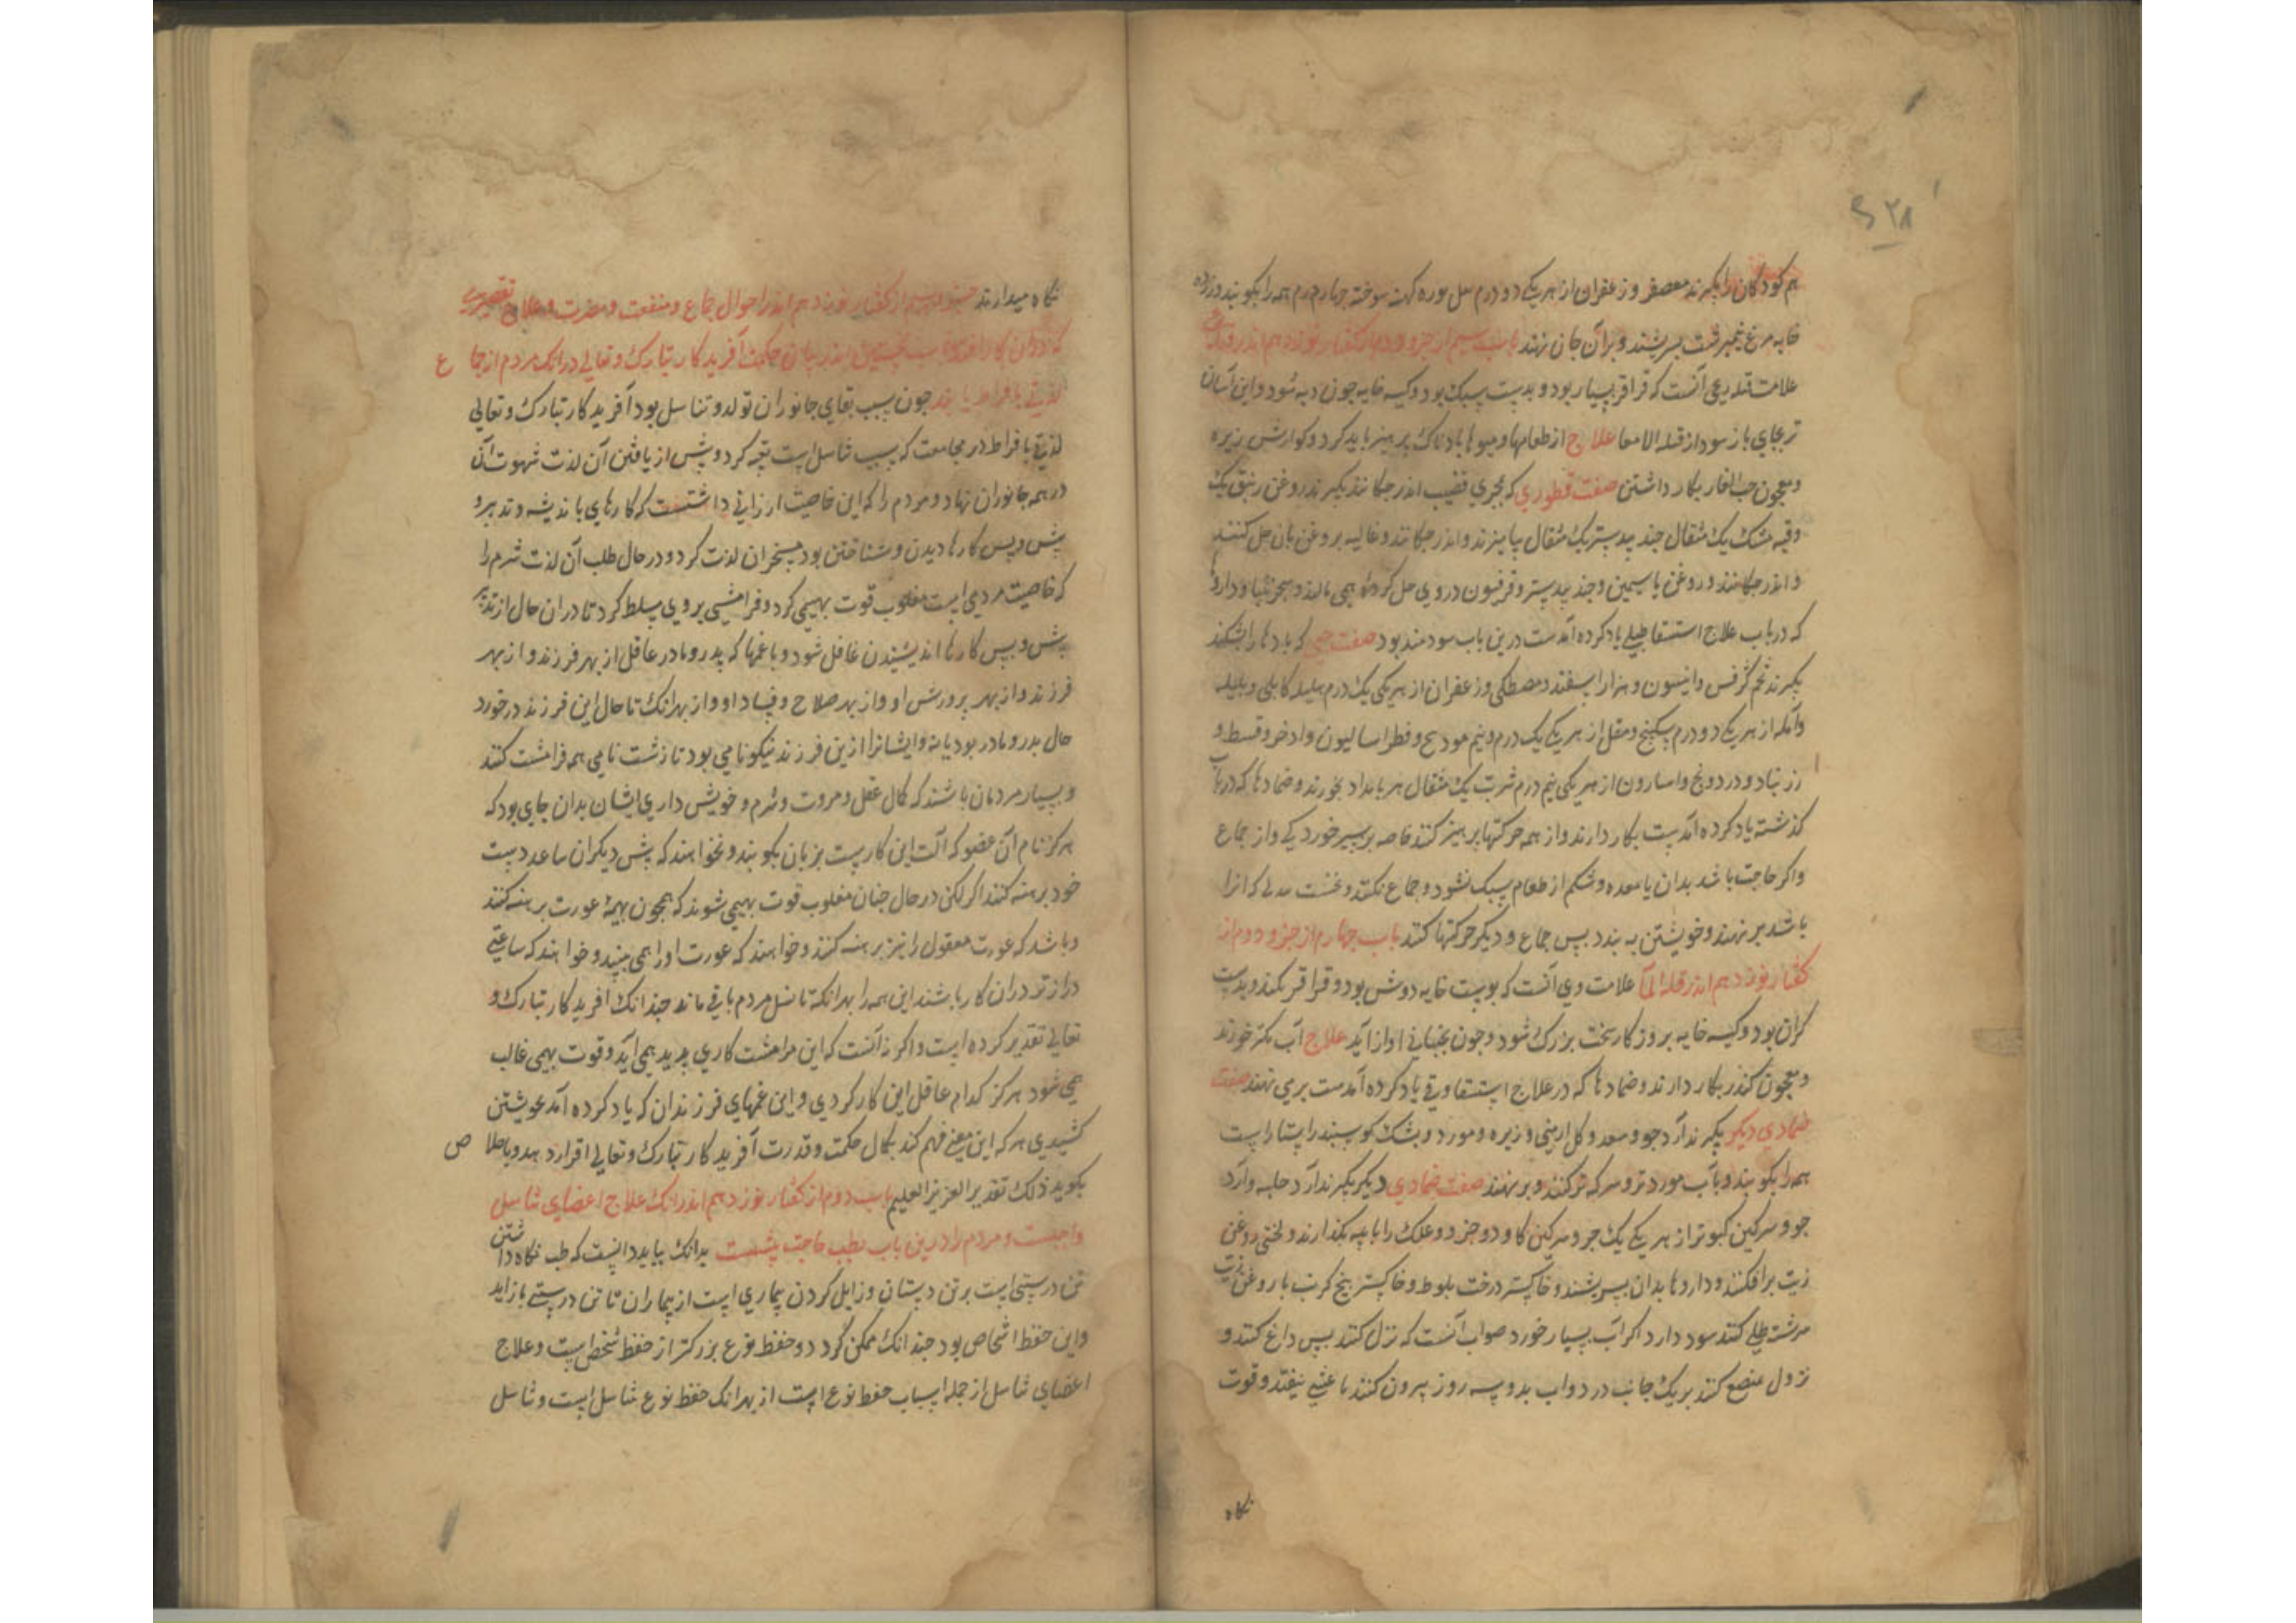 ۲۸
هم کودکان را بکیرند معصفر و زعفران از هر یکی دو درم سل بوره کهنه سوخته چهار درم همه را بکوبند و زرده
خایه مرغ نیمبرشت بسرشند و بر آن جای نهند باب سیم از جزو دوم از کفتار نوزدهم اندر
علامت قیله ریحی آنست که قراقر بسیار بود و بدست سبک بود و کیسه خایه چون دبه شود و این آسان
تر بجای باز شود از قیله الامعا علاج از طعامها و میوها بادناک پرهیز باید کرد و کوارش زیره
و معجون حب الغار بکار داشتن صفت قطوری که بمجری قضیب اندر چکانند بکیرند روغن زنبق یک
وقیه مشک یک مثقال جند بیدستر یک مثقال بیامیزند و اندر چکانند و غالیه بروغن بان حل کنند
و اندر چکانند و روغن یاسمین و جند بیدستر و فرفیون در وی حل کرده همی مالند و سجزنیا و دارو
که در باب علاج استسقا طبلی یاد کرده آمدست درین باب سودمند بود صفت حبی که بادها را بشکند
بکیرند تخم کرفس و انیسون و هزار اسفند و مصطکی و زعفران از هر یکی یک درم هلیله کابلی و بلیله
و آمله از هر یکی دو درم سکبینج و مقل از هر یکی یک درم و نیم مود بح و فطراسالیون و اذخر و قسط و
زرنباد و درونج و اسارون از هر یکی نیم درم شربت یک مثقال هر بامداد بخورند و ضمادها که در باب
کذشته یاد کرده آمدست بکار دارند و از همه حرکتها پرهیز کنند خاصه بر سیر خوردکی و از جماع
و اکر حاجت باشد بدان یا معده و شکم از طعام سبک نشود و جماع نکنند و نخست که آنرا
باشد بر نهند و خویشتن به بندد پس جماع و دیکر حرکتها کنند باب چهارم از جزو دوم از
کفتار نوزدهم اندر قیله الما علامت وی آنست که پوست خایه دوش بود و قراقر نکند و بدست
کران بود و کیسه خایه بروزکار سخت بزرک شود و چون بجنبانی اواز آید علاج آب کمتر خورند
و معجون کندر بکار دارند و ضمادها که در علاج استسقا و رقی یاد کرده آمدست بر می نهند صفت
ضمادی دیکر بکیرند آرد جو و سعد و کل ارمنی و زیره و مورد و پشک کوسپند راستا راست
همه را بکوبند و بآب مورد تر و سرکه تر کنند و بر نهند صفت ضمادی دیکر بکیرند آرد حلبه و آرد
جو و سرکین کبوتر از هر یکی یک جزو سرکین کاو دو جزو و علک را با پیه بکدازند و لختی روغن
زیت برافکنند و داروها بدان بسرشند و خاکستر درخت بلوط و خاکستر بیخ کرنب با روغن زیت
سرشته طلی کنند سود دارد اکر آب بسیار خورد صواب آنست که بزل کنند پس داغ کنند و
بزول کنند بر یک جانب در دو اب بدو سه روز بیرون کنند تا غشی نیفتد و قوت
نکاه
نکاه میدارند جزو سیم از کفتار نوزدهم اندر احوال جماع و منفعت و مضرت و علاج تقصیری
که در آن کار افتد باب نخستین اندر بیان حکمت آفریدکار تبارک و تعالی در آنکه مردم از جماع
لذتی بافراط یابند چون سبب بقای جانوران تولد و تناسل بود آفریدکار تبارک و تعالی
لذتی بافراط در مجامعت که سبب تناسل است تعبیه کرد و پیش از یافتن آن لذت شهوت آن
در همه جانوران نهاد و مردم را که این خاصیت ارزانی داشتست که کارهای باندیشه و تدبیر و
پیش و پس کارها دیدن و شناختن بود مسخر آن لذت کرد و در حال طلب آن لذت شرم را
که خاصیت مردمی است مغلوب قوت بهیمی کرد و فرامشی بر وی مسلط کرد تا در ان حال از تدبیر
پیش و پس کارها اندیشیدن غافل شود و با غمها که پدر و مادر عاقل از بهر فرزند و از بهر
فرزند و از بهر پرورش او و از بهر صلاح و فساد او و از بهر انک تا حال این فرزند در خورد
حال پدر و مادر بود یا نه و ایشانرا ازین فرزند نیکونامی بود تا زشت نامی همه فرامشت کنند
و بسیار مردمان باشند که کمال عقل و مروت و شرم و خویشتن داری ایشان بدان جای بود که
هرکز نام آن عضو که آلت این کارست بزبان بکویند و نخواهند که پیش دیکران ساعد دست
خود برهنه کنند اکر لکن در حال چنان مغلوب قوت بهیمی شوند که همچون بهیمه عورت برهنه کنند
و باشد که عورت معقول را نیز برهنه کنند و خواهند که عورت او را همی بینند و خواهند که ساعتی
درازتر در ان کار باشند این همه را بهر انکه تا نسل مردم باقی ماند چندانک آفریدکار تبارک و
تعالی تقدیر کرده است و اکر نه آنست که این فرامشت کاری پدید همی آید و قوت بهیمی غالب
همی شود هرکز کدام عاقل این کار کردی و این غمهای فرزندان که یاد کرده آمد بخویشتن
کشیدی هر که این معنی فهم کند بکمال حکمت و قدرت آفریدکار تبارک و تعالی اقرار دهد و باخلاص
بکوید ذلک تقدیر العزیز العلیم باب دوم از کفتار نوزدهم اندر انک علاج اعضای تناسل
واجبست و مردم را درین باب بطب حاجت بیشست بدانک بباید دانست که طب نکاه داشتن
تن درستی است بر تن درستان و زایل کردن بیماری است از بیماران تا تن درستی باز آید
و این حفظ اشخاص بود چندانک ممکن کردد و حفظ نوع بزرکتر از حفظ شخص است و علاج
اعضای تناسل از جمله اسباب حفظ نوع است از بهر انک حفظ نوع تناسل است و تناسل